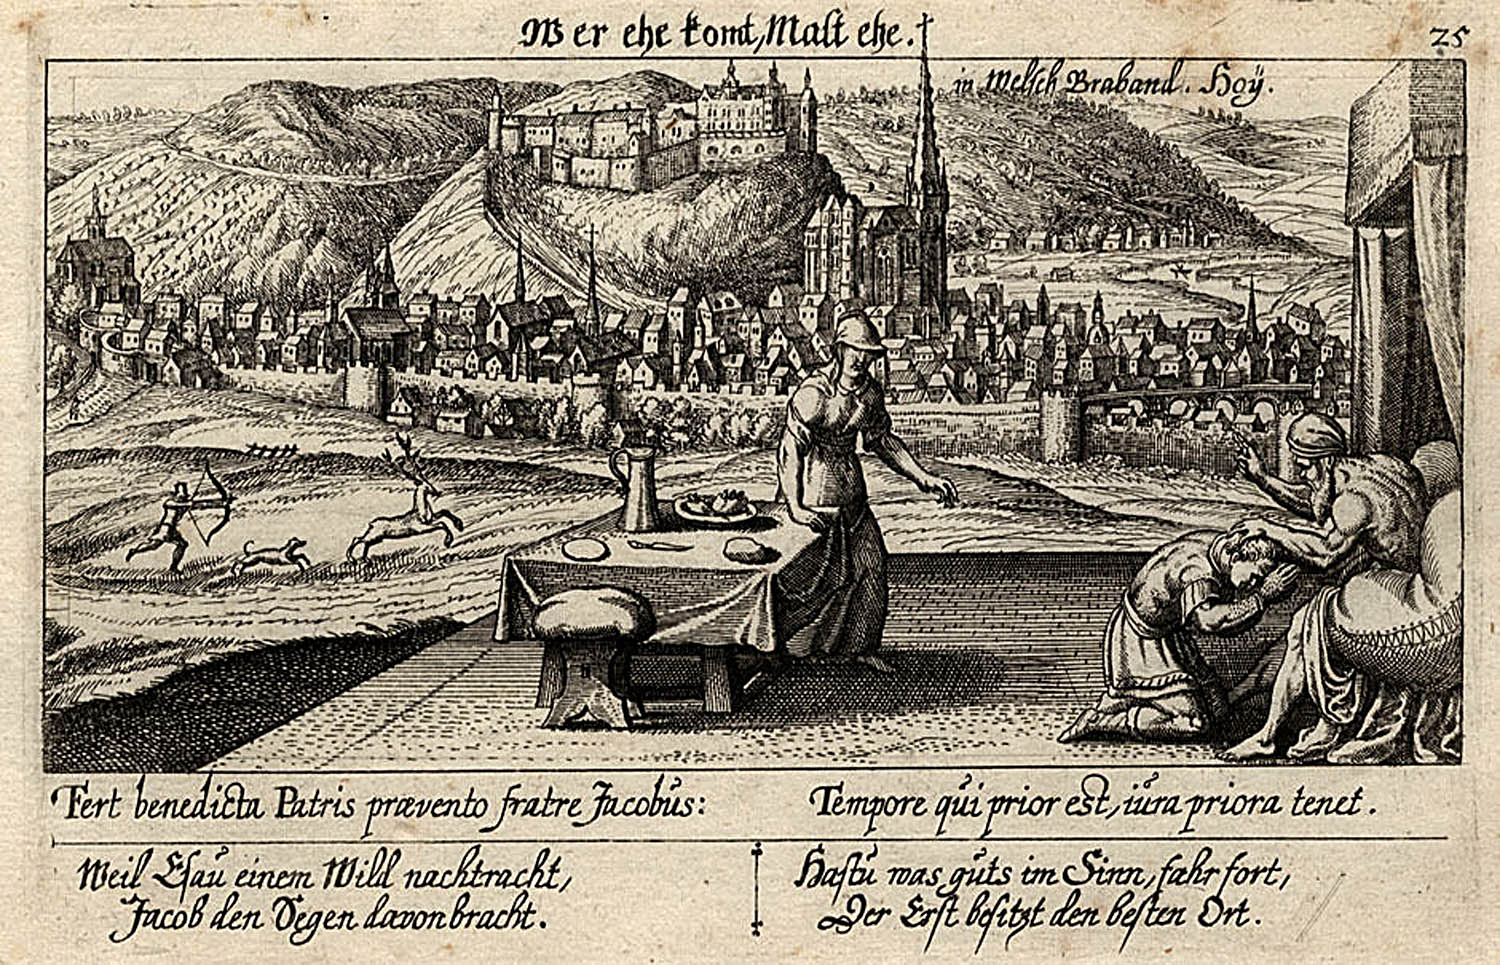 Wer ehe komt, Malt ehe.
25
in Welsch Braband. Hoÿ.
Fert benedicta Patris prævento fratre Jacobus:
Tempore qui prior est, iura priora tenet.
Weil Esau einem Wild nachtracht,
Jacob den Segen davon bracht.
Hastu was guts im Sinn, fahr fort,
Der Erst besitzt den besten Ort.